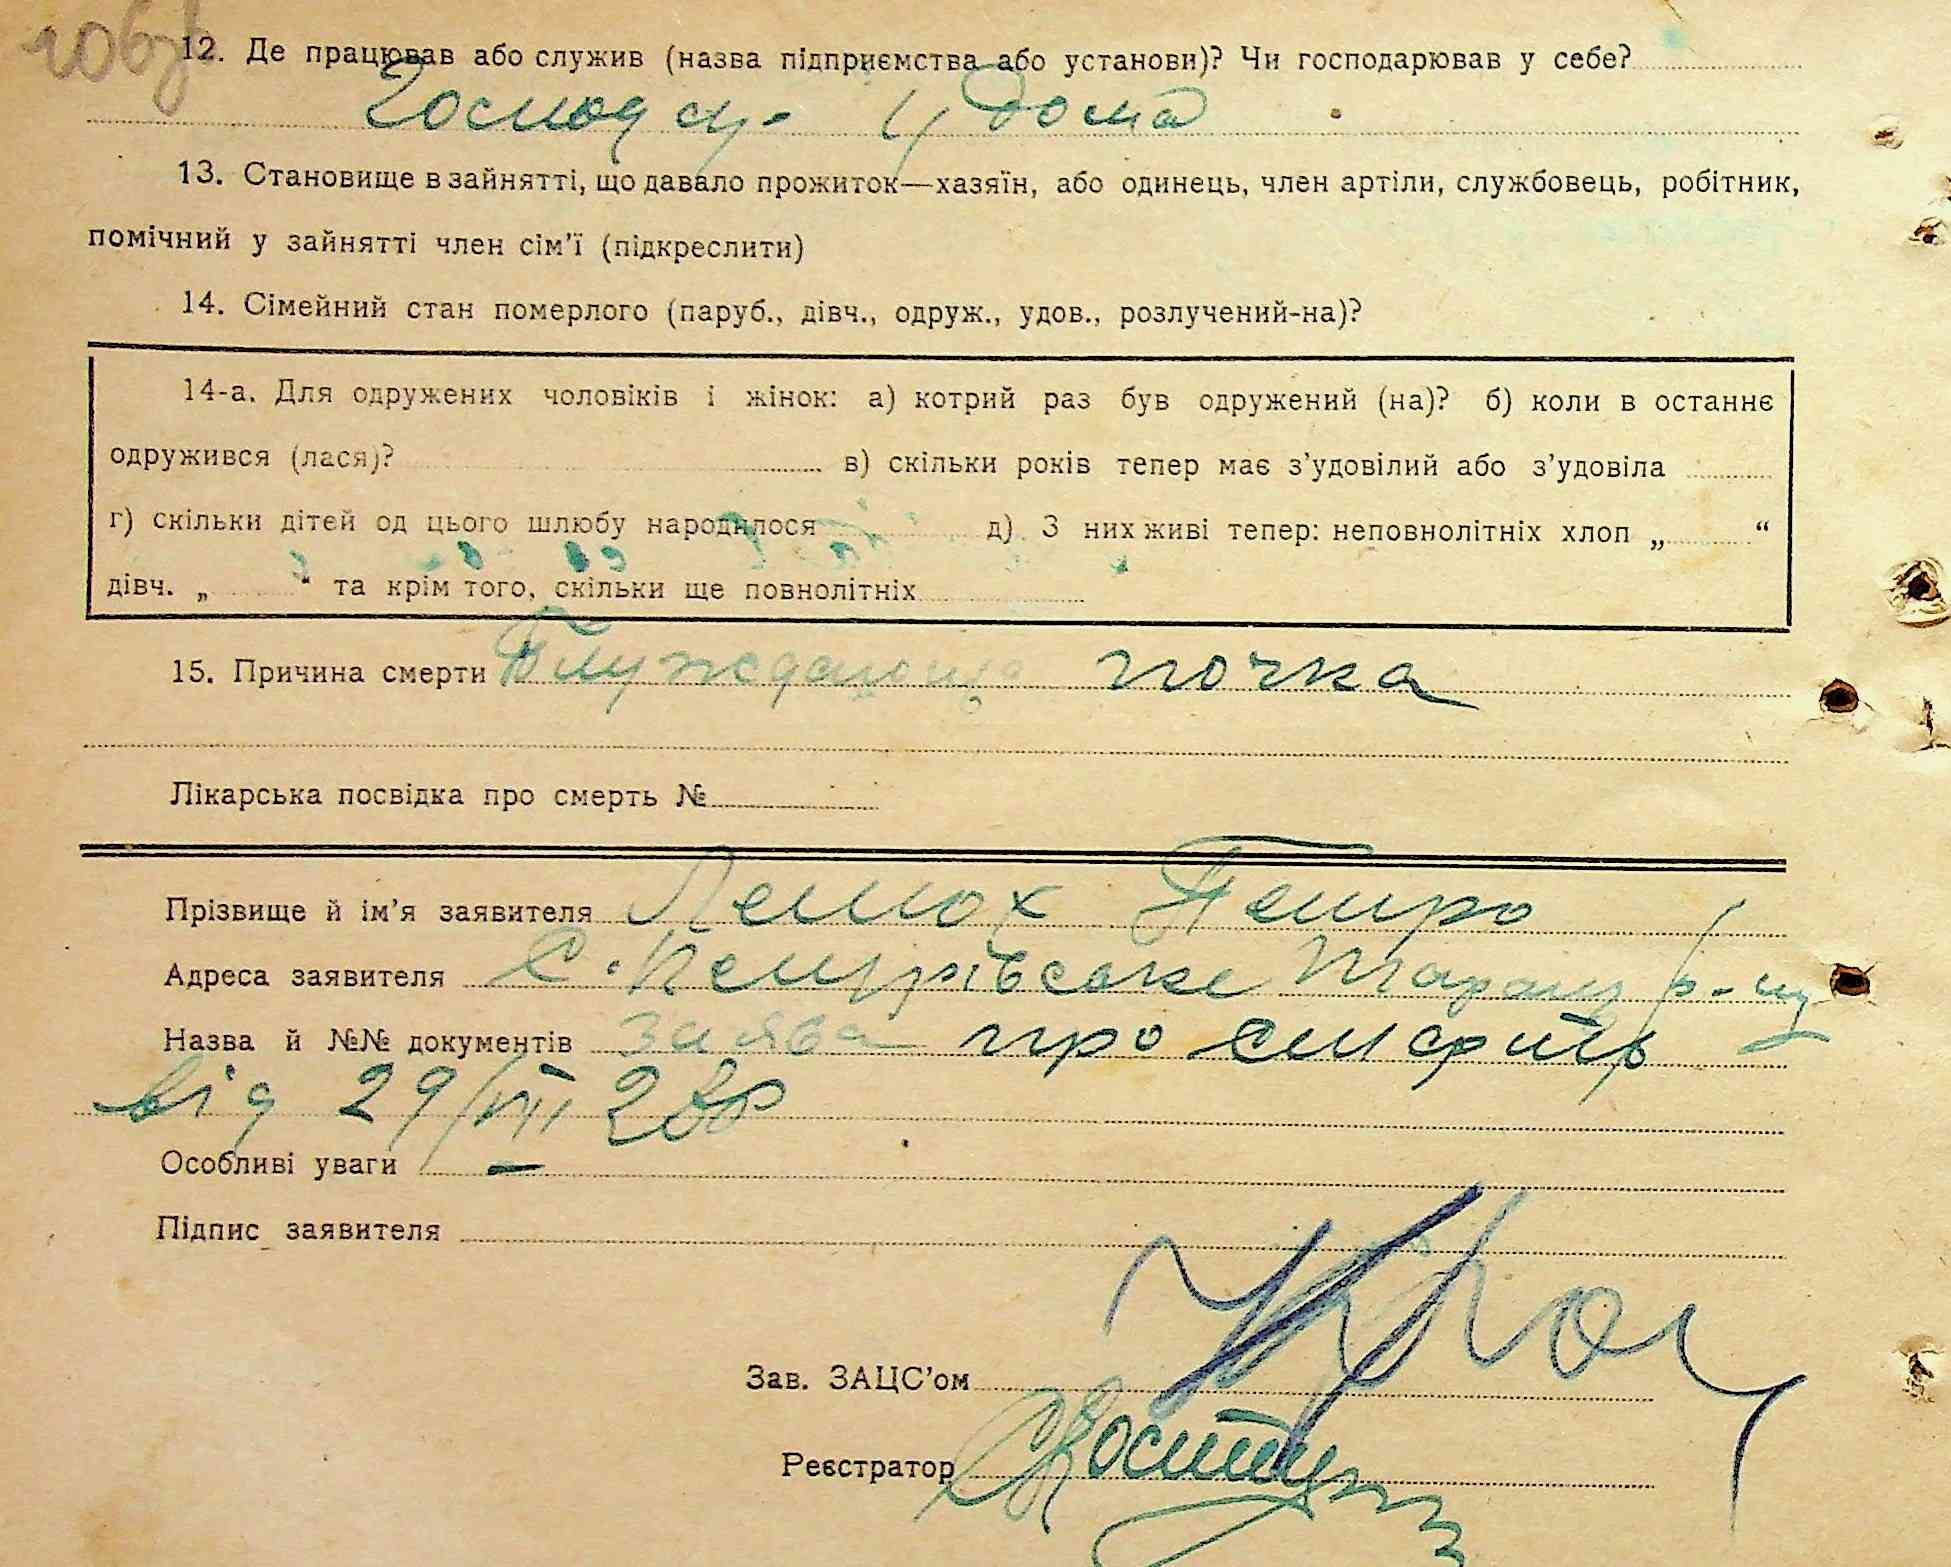 106зв
12. Де працював або служив (назва підприємства або установи)? Чи господарював у себе?
Господ у дома
13. Становище в зайнятті, що давало прожиток—хазяїн, або одинець, член артіли, службовець, робітник,
помічний у зайнятті член сім'ї (підкреслити)
14. Сімейний стан померлого (паруб., дівч., одруж., удов., розлучений-на)?
14-а. Для одружених чоловіків і жінок: а) котрий раз був одружений (на)? б) коли в останнє
одружився (лася)? в) скільки років тепер має з'удовілий або з'удовіла
г) скільки дітей од цього шлюбу народилося д) З них живі тепер: неповнолітніх хлоп „ “
дівч. „ “ та крім того, скільки ще повнолітніх
15. Причина смерти Блуждающа почка
Лікарська посвідка про смерть №
Прізвище й ім'я заявителя Петро
Адреса заявителя с. Петрівське р-ну
Назва й №№ документів заява про смерть
від 29/VII 28р
Особливі уваги —
Підпис заявителя
Зав. ЗАЦС'ом
Реєстратор